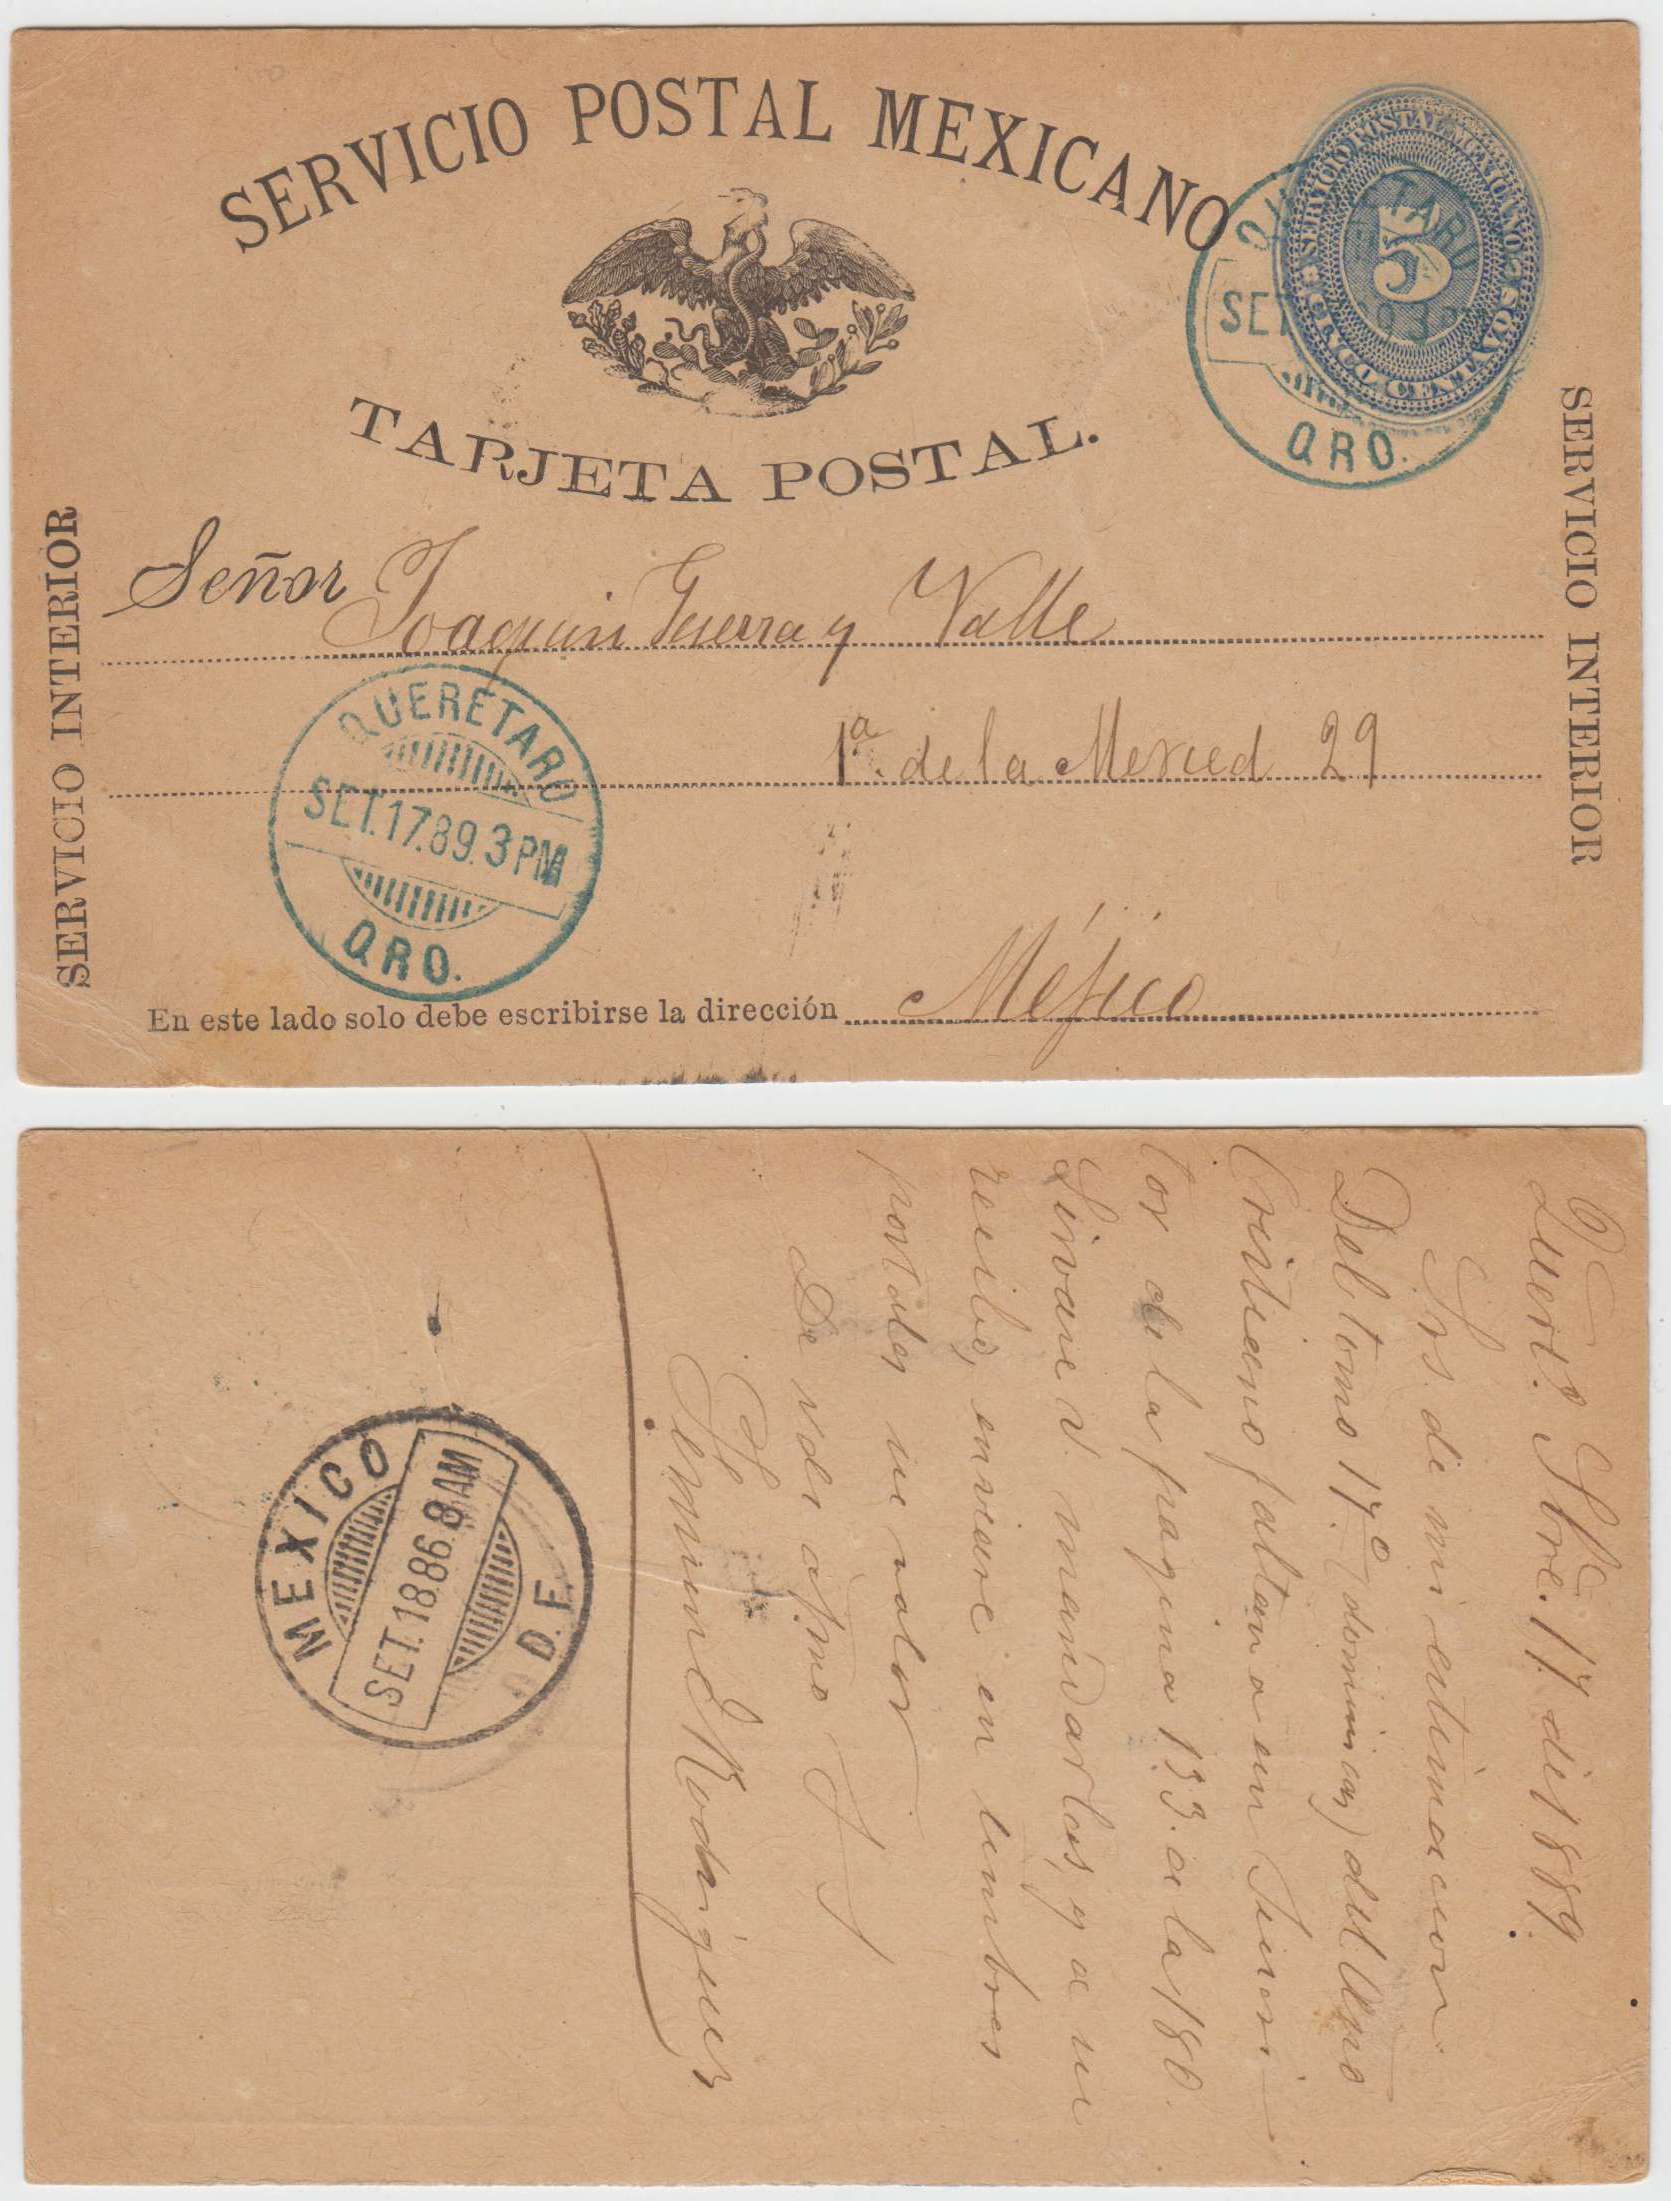 SERVICIO POSTAL MEXICANO
SERVICIO POSTAL MEXICANO
5
CINCO CENTAVOS
QUERETARO
SET
QRO.
TARJETA POSTAL.
SERVICIO INTERIOR
SERVICIO INTERIOR
Señor Joaquin Guerra y Valle
1ª de la Merced 29
QUERETARO
SET.17.89.3PM
QRO.
En este lado solo debe escribirse la dirección Méjico
Quero. Sbre. 17 de 1889.
Srs. de mi estimacion
Del tomo 17º (dominicas) del Año
Cristiano faltan a un Suscri
tor de la pagina 133. a la 180.
Sirvase V. mandarlos, y a su
recibo, enviare en timbres
postales su valor
De Vds afmo S S
Fermin Rodriguez
MEXICO
SET.18.86.8AM
D.F.